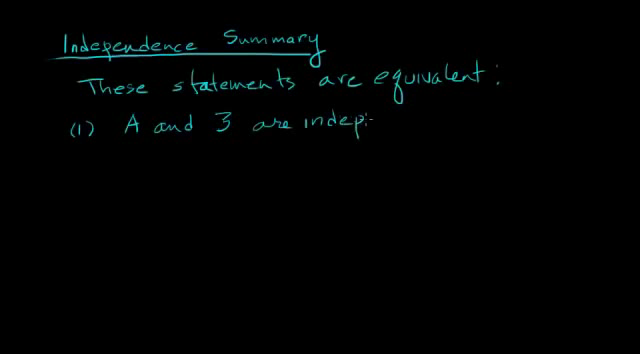 Independence Summary
These statements are equivalent:
(1) A and 3 are indep